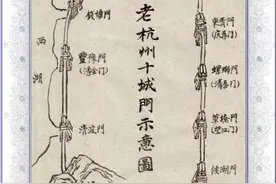 老杭州十城門示意圖
錢塘門
西湖
豐豫門
(湧金門)
清波門
東青門
(慶春門)
螺螄門
(清泰門)
草橋門
(望江門)
候潮門